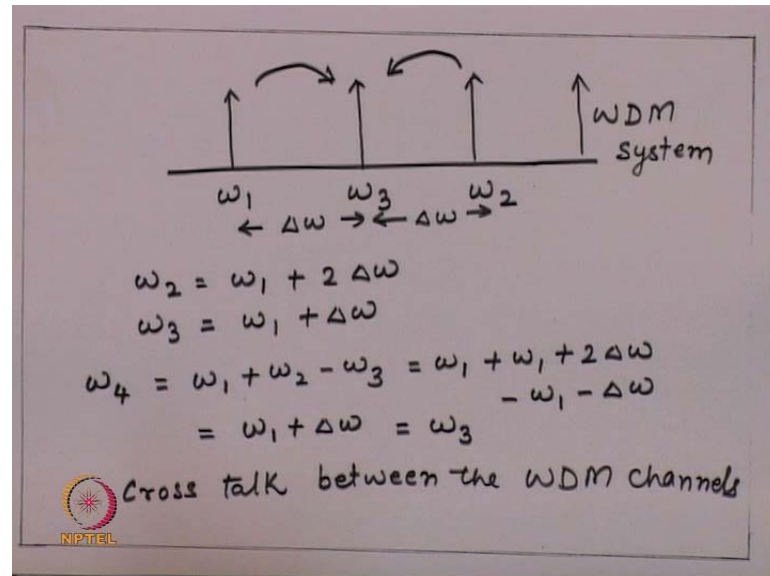 WDM
system
ω₁ ω₃ ω₂
← Δω → ← Δω →
ω₂ = ω₁ + 2 Δω
ω₃ = ω₁ + Δω
ω₄ = ω₁ + ω₂ - ω₃ = ω₁ + ω₁ + 2 Δω
- ω₁ - Δω
= ω₁ + Δω = ω₃
Cross talk between the WDM channels
NPTEL